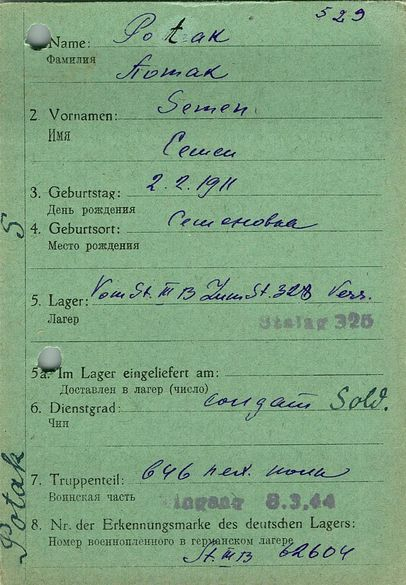 529
1 Name: Potak
Фамилия
Потак
2 Vornamen: Semen
Имя
Семен
3. Geburtstag: 2.2.1911
День рождения
4. Geburtsort: Семеновка
Место рождения
5. Lager: Vom St. III B Zum St. 328 Vers.
Лагерь
Stalag 325
5a. Im Lager eingeliefert am:
Доставлен в лагерь (число)
6. Dienstgrad: солдат Sold.
Чин
7. Truppenteil: 646 пех. полк
Воинская часть
Ingang 8.3.44
8. Nr. der Erkennungsmarke des deutschen Lagers:
Номер военнопленного в германском лагере
St. III B 62604
Potak S